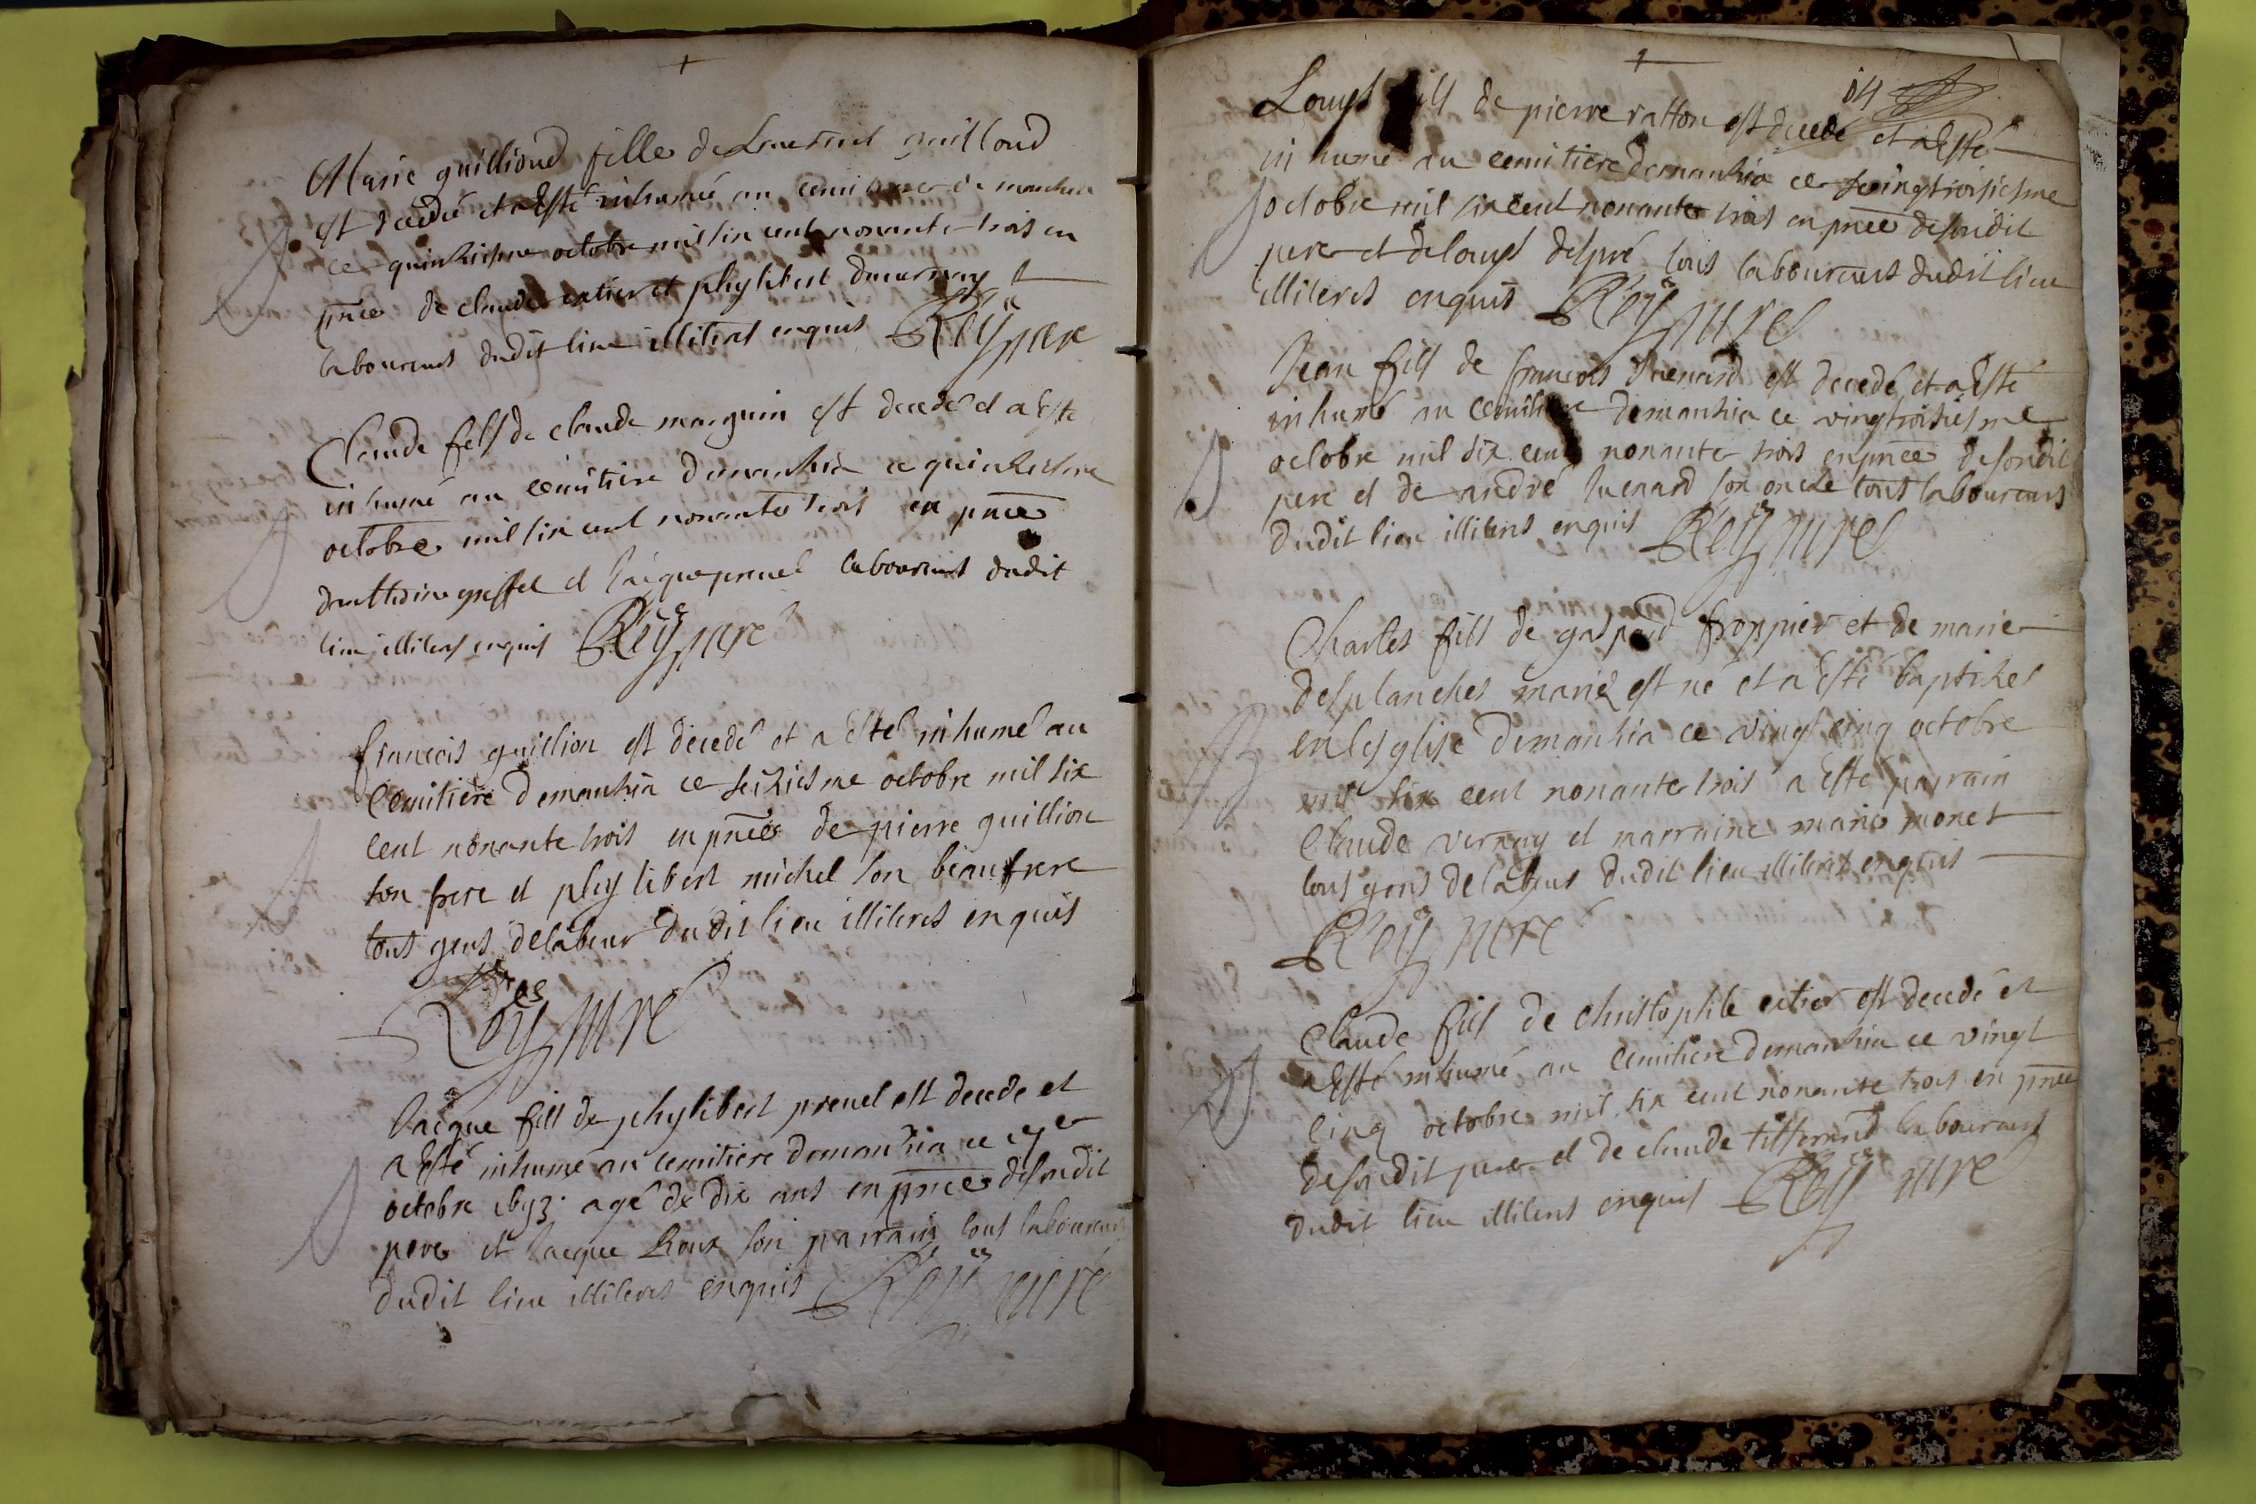 Marie guilliond fille de Laurent guilliond
est decedé et a Esté inhumée au cemitiere de manhia
ce quinziesme octobre mil six cent nonante trois en
pnce de claude et phylibert ducurnay
laboureurs dudit lieu illiteres enquis Rey curé
Claude fils de claude marguin est decedé et a Este
inhumé au cemitiere demanhia ce quinziesme
octobre mil six cent nonante trois en pnce
danthoine greffet et Jacque prenel laboureurs dudit
lieu illiteres enquis Rey curé
francois guillion est decedé et a Esté inhumé au
Cemitiere demanhia ce seiziesme octobre mil six
cent nonante trois en pnce de pierre guillion
son frere et phylibert michel son beaufrere
tous gens delabeur dudit lieu illiteres enquis
Rey curé
Jacque fils de phylibert prenel est decede et
a Esté inhumé au cemitiere demanhia ce
octobre 1693 agé de dix ans en pnce desondit
pere et Jacque Roux son parrain tous laboureurs
dudit lieu illiteres enquis Rey curé
04
Louys fils de pierre ratton est decedé et a Esté
inhumé au cemitiere demanhia ce vingtroisiesme
octobre mil six cent nonante trois en pnce desondit
pere et de louys despré tous laboureurs dudit lieu
illiteres enquis Rey curé
Jean fils de francois Juenard est decedé et a Esté
inhumé au cemitiere demanhia ce vingtroisiesme
octobre mil six cent nonante trois en pnce desondit
pere et de andré Juenard son oncle tous laboureurs
dudit lieu illiteres enquis Rey curé
Charles fils de gaspard froppier et de marie
desplanches mariés est né et a Esté baptizé
en lesglise demanhia ce vingt cinq octobre
mil six cent nonante trois a Esté parrain
Claude vernay et marraine marie monet
tous gens de labeur dudit lieu illiteres enquis
Rey curé
Claude fils de christophle est decedé et
a Esté inhumé au cemitiere demanhia ce vingt
cinq octobre mil six cent nonante trois en pnce
desondit pere et de claude tifferand laboureurs
dudit lieu illiteres enquis Rey curé